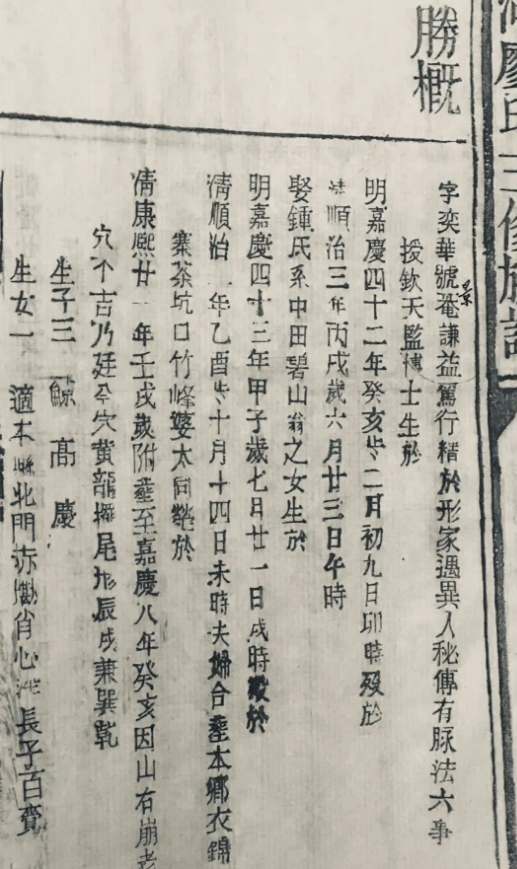 廖氏三修族譜
勝概
字奕華號菴謙益篤行精於形家遇異人秘傳有脉法六事
授欽天監博士生於
明嘉慶四十二年癸亥歲二月初九日卯時歿於
清順治三年丙戌歲六月廿三日午時
娶鍾氏系中田碧山翁之女生於
明嘉慶四十三年甲子歲七月廿一日戌時歿於
清順治年乙酉歲十月十四日未時夫婦合塟本鄉衣錦
寨茶坑口竹峰婆太同塋於
清康熙廿一年壬戌歲附塟至嘉慶八年癸亥因山右崩老
穴不吉乃廷今穴黄龍擺尾形辰戌兼巽乾
生子三 鯨 高 慶
生女一 適本縣北門赤磡肖心 長子百賚